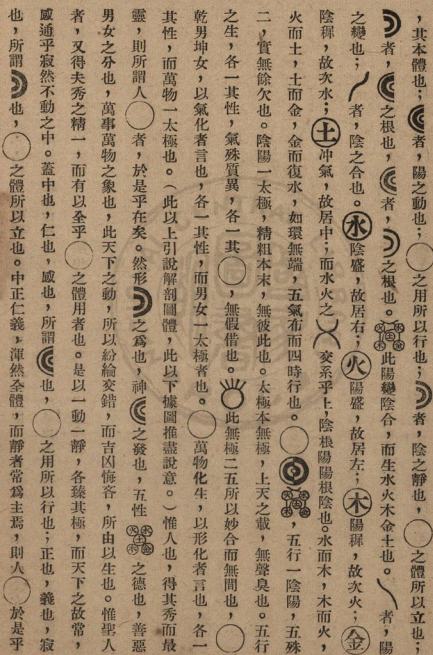 ，其本體也；者，陽之動也；之用所以行也；者，陰之靜也，之體所以立也；
者，之根也，者，之根也。此陽變陰合，而生水火木金土也。者，陽
之變也；者，陰之合也。水陰盛，故居右；火陽盛，故居左；木陽穉，故次火；金
陰穉，故次水；土冲氣，故居中；而水火之交系乎上，陰根陽陽根陰也。水而木，木而火，
火而土，土而金，金而復水，如環無端，五氣布而四時行也。五行一陰陽，五殊
二，實無餘欠也。陰陽一太極，精粗本末，無彼此也。太極本無極，上天之載，無聲臭也。五行
之生，各一其性，氣殊質異，各一其，無假借也。此無極二五所以妙合而無間也，
乾男坤女，以氣化者言也，各一其性，而男女一太極者也。萬物化生，以形化者言也，各一
其性，而萬物一太極也。（此以上引說解剖圖體，此以下據圖推盡說意。）惟人也，得其秀而最
靈，則所謂人者，於是乎在矣。然形之爲也，神之發也，五性之德也，善惡
男女之分也，萬事萬物之象也，此天下之動，所以紛綸交錯，而吉凶悔吝，所由以生也。惟聖人
者，又得夫秀之精一，而有以全乎之體用者也。是以一動一靜，各臻其極，而天下之故常，
感通乎寂然不動之中。蓋中也，仁也，感也，所謂也，之用所以行也；正也，義也，寂
也，所謂也，之體所以立也。中正仁義，渾然全體，而靜者常爲主焉，則人於是乎